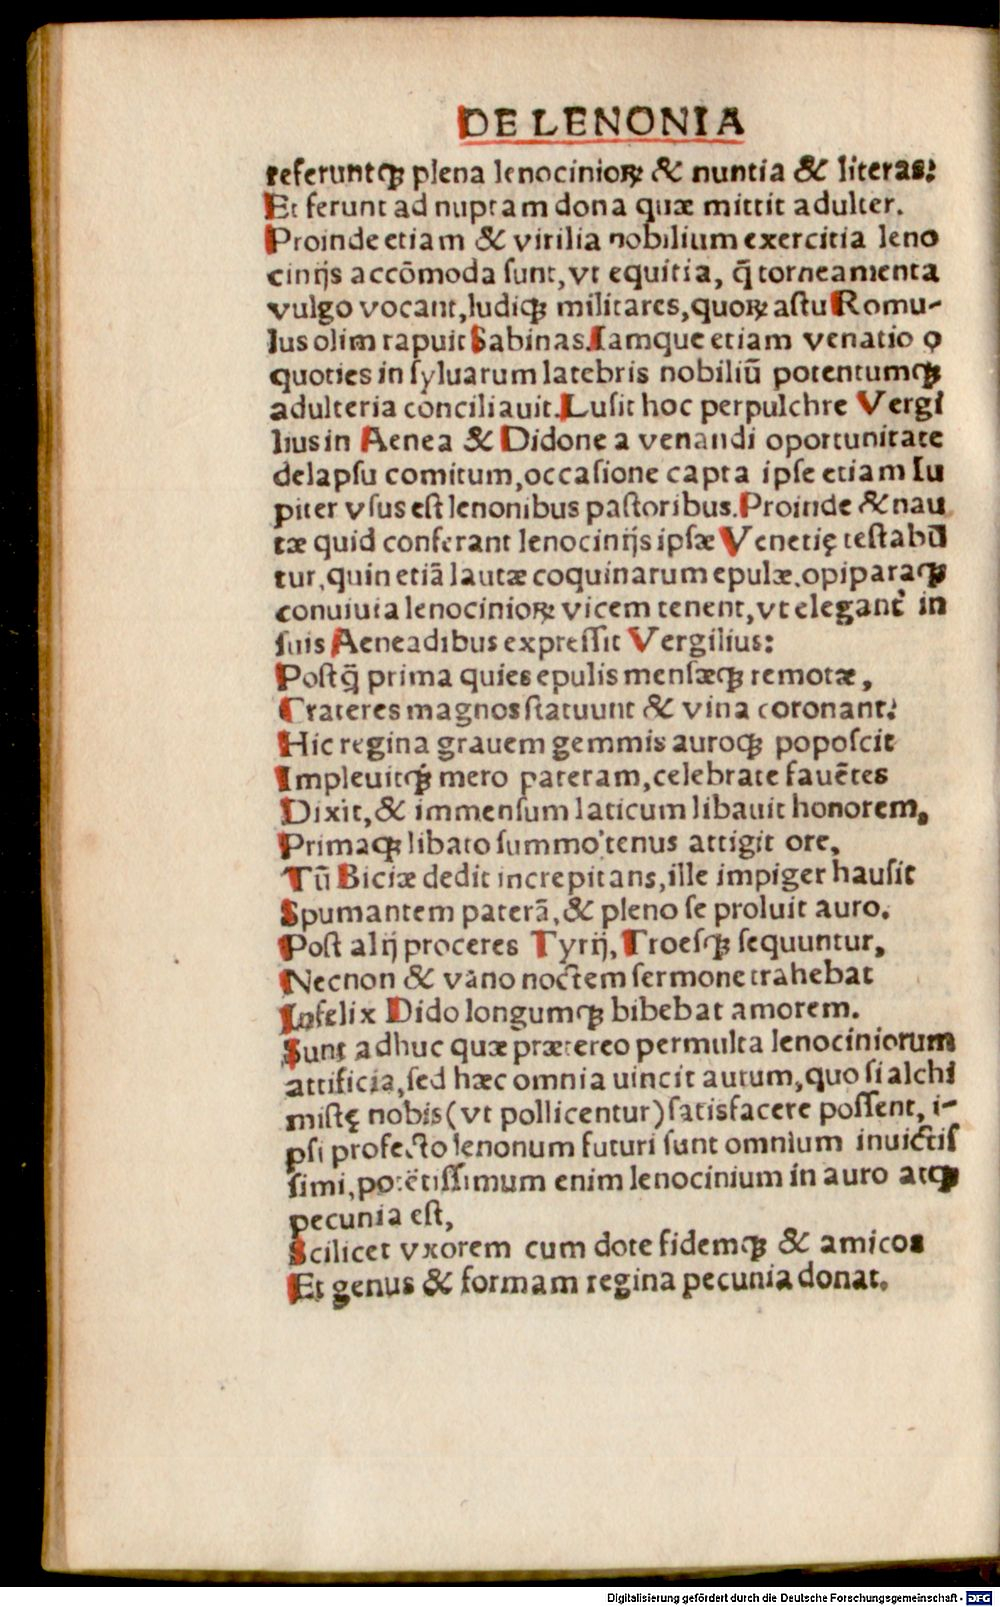 DE LENONIA
referuntqꝫ plena lenocinioꝝ & nuntia & literas:
Et ferunt ad nuptam dona quæ mittit adulter.
Proinde etiam & virilia nobilium exercitia leno
cinijs accōmoda sunt, vt equitia, q̄ torneamenta
vulgo vocant, ludiqꝫ militares, quoꝝ astu Romu-
lus olim rapuit Sabinas. Iamque etiam venatio o
quoties in syluarum latebris nobiliū potentumqꝫ
adulteria conciliauit. Lusit hoc perpulchre Vergi
lius in Aenea & Didone a venandi oportunitate
delapsu comitum, occasione capta ipse etiam Iu
piter vsus est lenonibus pastoribus. Proinde & nau
tæ quid conferant lenocinijs ipsæ Venetię testabū
tur, quin etiā lautæ coquinarum epulæ, opiparaqꝫ
conuiuia lenocinioꝝ vicem tenent, vt elegant᷒ in
suis Aeneadibus expressit Vergilius:
Postq̄ prima quies epulis mensæqꝫ remotæ,
Crateres magnos statuunt & vina coronant:
Hic regina grauem gemmis auroqꝫ poposcit
Impleuitqꝫ mero pateram, celebrate fauētes
Dixit, & immensum laticum libauit honorem,
Primaqꝫ libato summo tenus attigit ore,
Tū Biciæ dedit increpitans, ille impiger hausit
Spumantem paterā, & pleno se proluit auro.
Post alij proceres Tyrij, Troesqꝫ sequuntur,
Necnon & vano noctem sermone trahebat
Infelix Dido longumqꝫ bibebat amorem.
Sunt adhuc quæ prætereo permulta lenociniorum
artificia, sed hæc omnia uincit aurum, quo si alchi
mistę nobis (vt pollicentur) satisfacere possent, i-
psi profecto lenonum futuri sunt omnium inuictis
simi, potētissimum enim lenocinium in auro atqꝫ
pecunia est,
Scilicet vxorem cum dote fidemqꝫ & amicos
Et genus & formam regina pecunia donat.
Digitalisierung gefördert durch die Deutsche Forschungsgemeinschaft - DFG